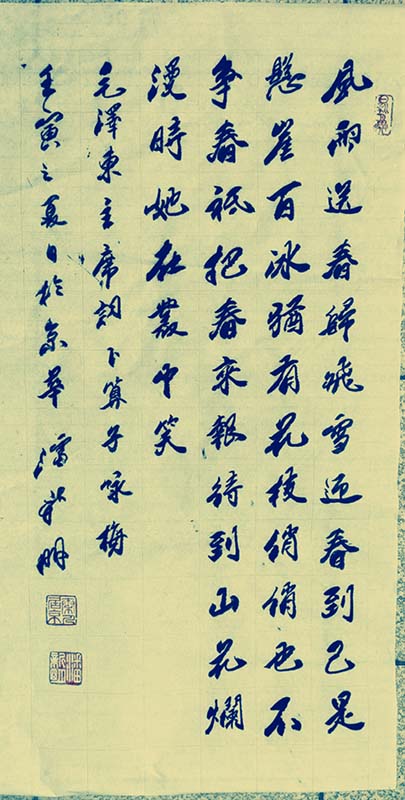 風雨送春歸飛雪迎春到已是
懸崖百冰猶有花枝俏俏也不
争春祇把春來報待到山花爛
漫時她在叢中笑
毛澤東主席詞卜算子咏梅
壬寅之夏日於京華 潘新明